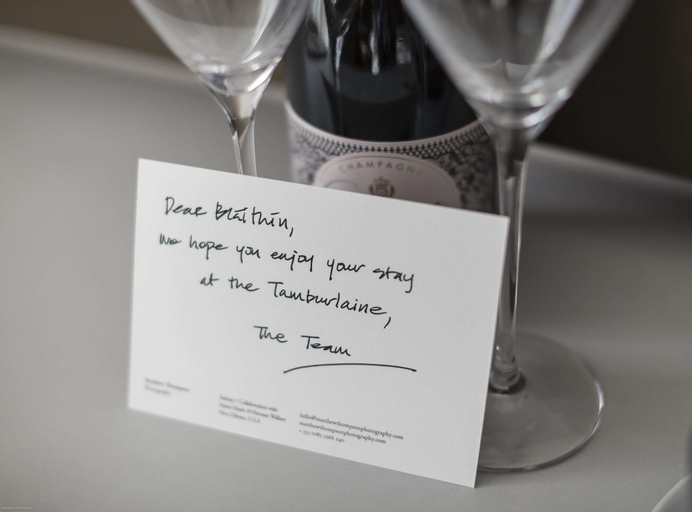 CHAMPAGNE
Dear Bláithín,
we hope you enjoy your stay
at the Tamburlaine,
The Team
Matthew Thompson
Photography
hello@matthewthompsonphotography.com
matthewthompsonphotography.com